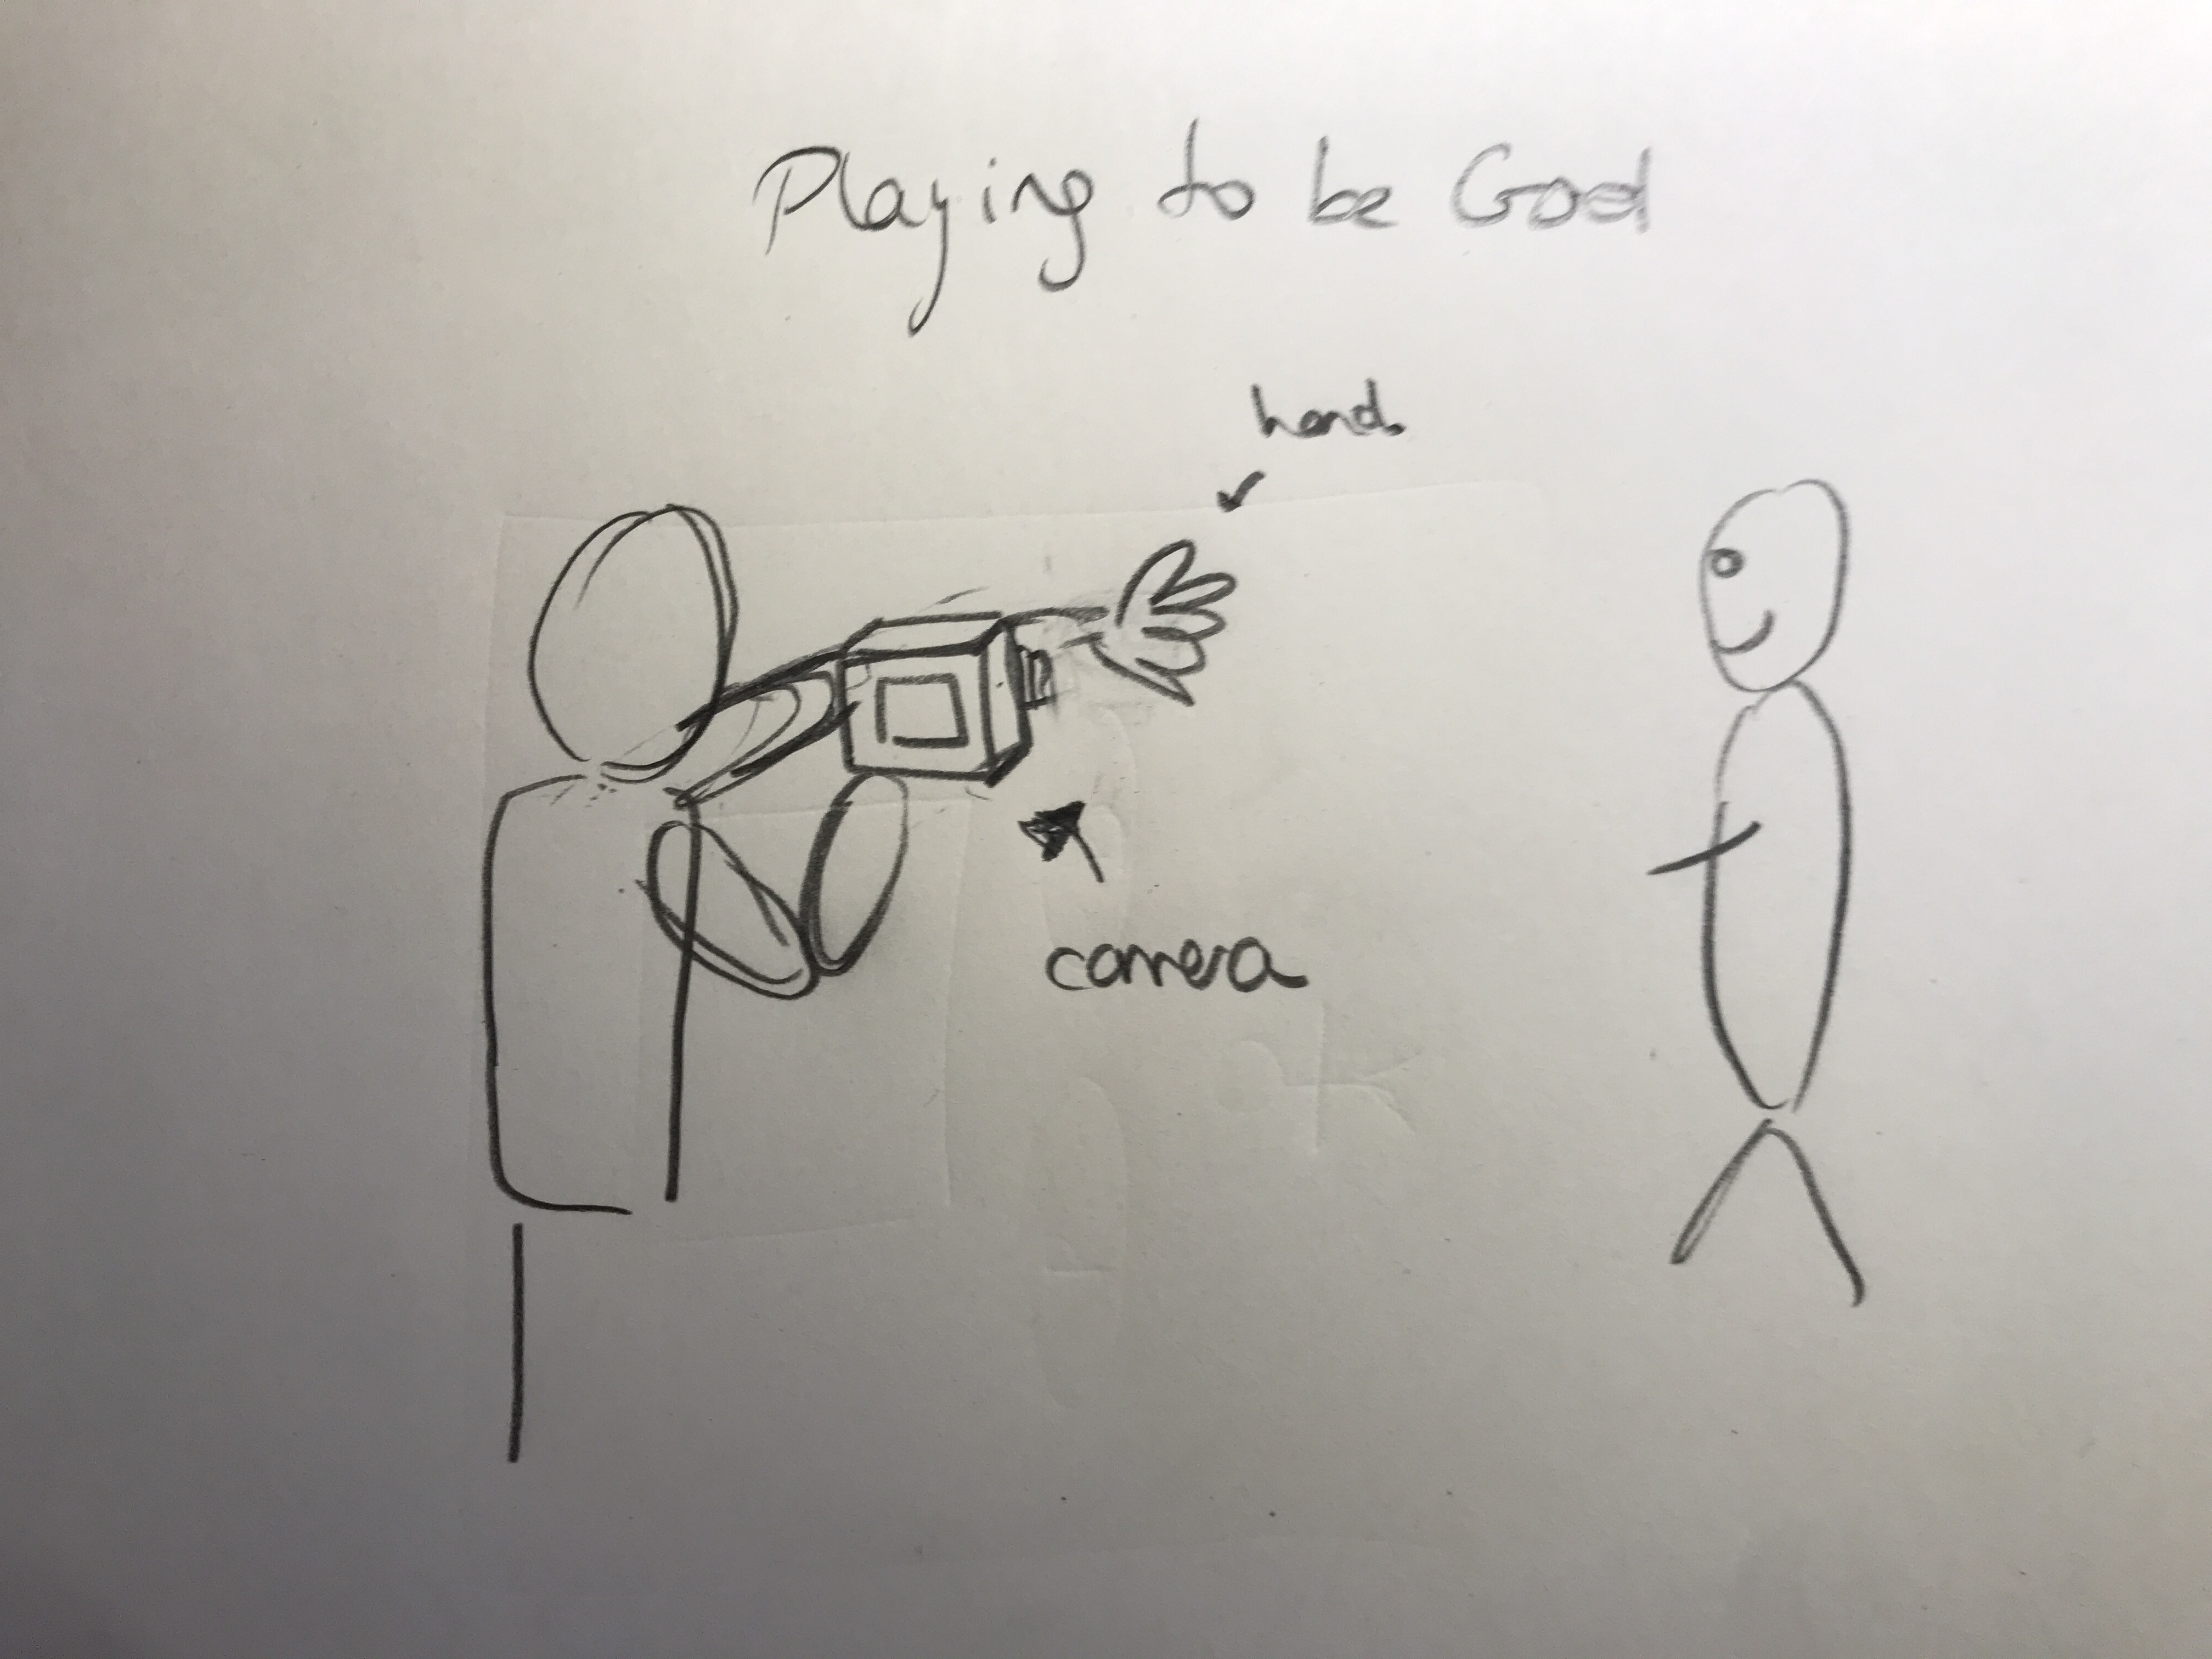 Playing to be God
hand
camera